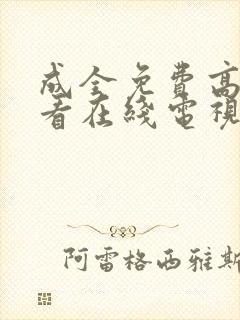 成全免费高
看在线電視
阿雷格西雅斯